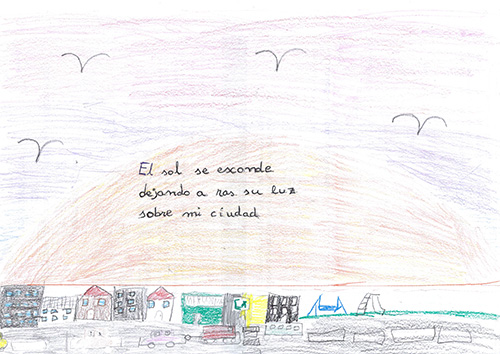 El sol se esconde
dejando a ras su luz
sobre mi ciudad